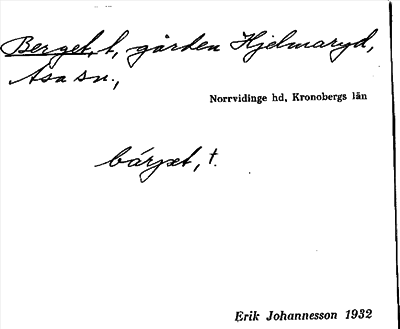 Berget, t, gården Hjelmaryd,
Asa sn.,
Norrvidinge hd, Kronobergs län
bárjet, t.
Erik Johannesson 1932